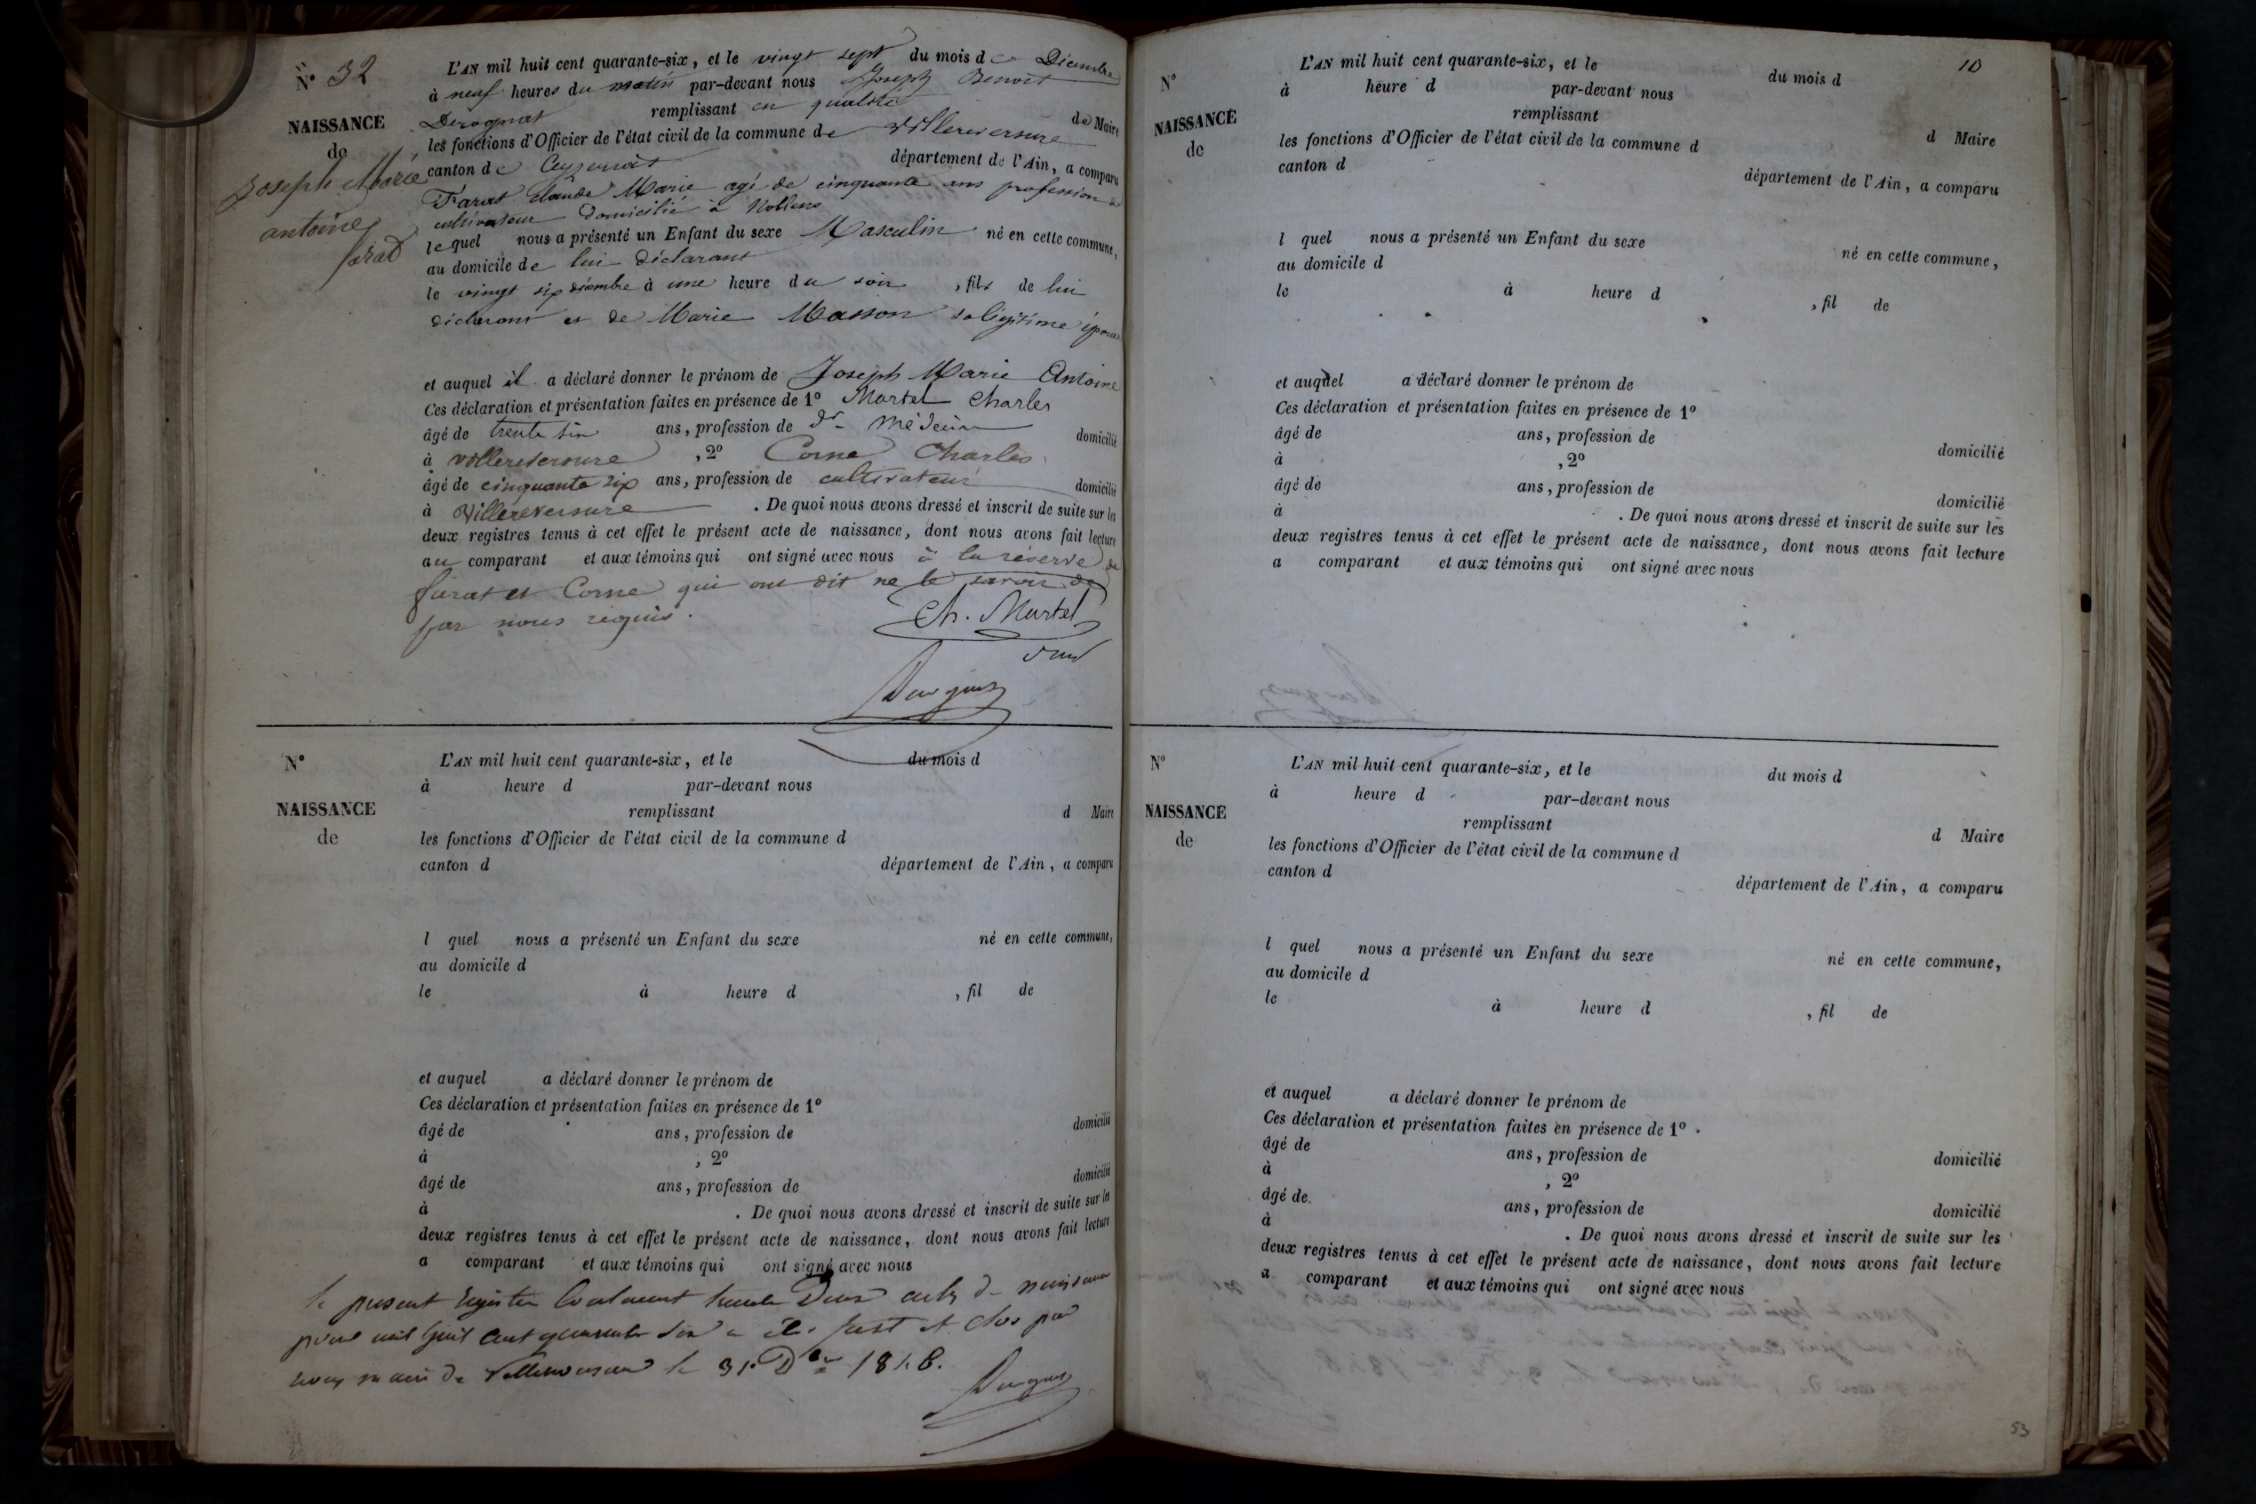 N° 32
NAISSANCE
de
Joseph Marie
antoine
farat
L'AN mil huit cent quarante-six, et le vingt sept du mois de Décembre
à neuf heures du matin par-devant nous Joseph Benoit
Derognat remplissant en qualité de Maire
les fonctions d'Officier de l'état civil de la commune de villereversure
canton de Ceyzeriat département de l'Ain, a comparu
Farat claude Marie agé de cinquante ans profession de
cultivateur domicilié à Noblens
lequel nous a présenté un Enfant du sexe Masculin né en cette commune,
au domicile de lui déclarant
le vingt six décembre à une heure du soir, fils de lui
déclarant et de Marie Masson sa légitime épouse
et auquel il a déclaré donner le prénom de Joseph Marie Antoine
Ces déclaration et présentation faites en présence de 1° Martel Charles
âgé de trente six ans, profession de dr médecin domicilié
à villereversure, 2° Corne Charles
âgé de cinquante six ans, profession de cultivateur domicilié
à Villereversure. De quoi nous avons dressé et inscrit de suite sur les
deux registres tenus à cet effet le présent acte de naissance, dont nous avons fait lecture
au comparant et aux témoins qui ont signé avec nous à la réserve de
farat et Corne qui ont dit ne le savoir de
par nous requis.
Ch. Martel
N°
NAISSANCE
de
L'AN mil huit cent quarante-six, et le du mois d
à heure d par-devant nous
remplissant d Maire
les fonctions d'Officier de l'état civil de la commune d
canton d département de l'Ain, a comparu
l quel nous a présenté un Enfant du sexe né en cette commune,
au domicile d
le à heure d , fil de
et auquel a déclaré donner le prénom de
Ces déclaration et présentation faites en présence de 1°
âgé de ans, profession de domicilié
à , 2°
âgé de ans, profession de domicilié
à . De quoi nous avons dressé et inscrit de suite sur les
deux registres tenus à cet effet le présent acte de naissance, dont nous avons fait lecture
a comparant et aux témoins qui ont signé avec nous
le present registre Contenant trente Deux actes de naissance
pour mil huit cent quarante six a été fait et clos par
nous maire de villereversure le 31 Dbre 1846.
10
N°
NAISSANCE
de
L'AN mil huit cent quarante-six, et le du mois d
à heure d par-devant nous
remplissant d Maire
les fonctions d'Officier de l'état civil de la commune d
canton d département de l'Ain, a comparu
l quel nous a présenté un Enfant du sexe né en cette commune,
au domicile d
le à heure d , fil de
et auquel a déclaré donner le prénom de
Ces déclaration et présentation faites en présence de 1°
âgé de ans, profession de domicilié
à , 2°
âgé de ans, profession de domicilié
à . De quoi nous avons dressé et inscrit de suite sur les
deux registres tenus à cet effet le présent acte de naissance, dont nous avons fait lecture
a comparant et aux témoins qui ont signé avec nous
N°
NAISSANCE
de
L'AN mil huit cent quarante-six, et le du mois d
à heure d par-devant nous
remplissant d Maire
les fonctions d'Officier de l'état civil de la commune d
canton d département de l'Ain, a comparu
l quel nous a présenté un Enfant du sexe né en cette commune,
au domicile d
le à heure d , fil de
et auquel a déclaré donner le prénom de
Ces déclaration et présentation faites en présence de 1°
âgé de ans, profession de domicilié
à , 2°
âgé de ans, profession de domicilié
à . De quoi nous avons dressé et inscrit de suite sur les
deux registres tenus à cet effet le présent acte de naissance, dont nous avons fait lecture
a comparant et aux témoins qui ont signé avec nous
53